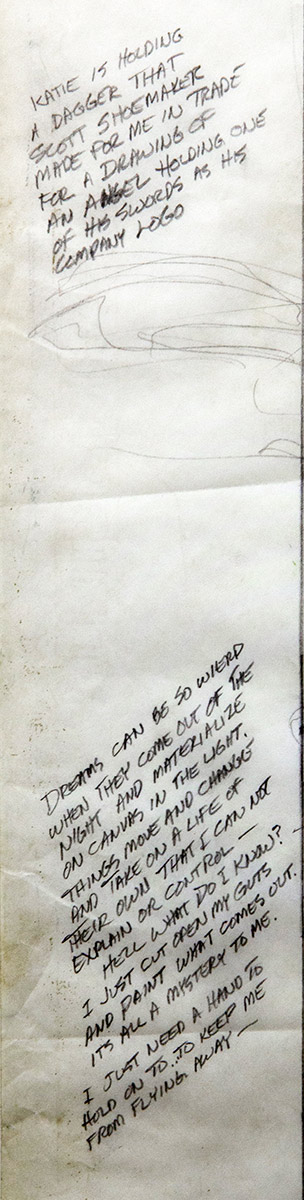 KATIE IS HOLDING
A DAGGER THAT
SCOTT SHOEMAKER
MADE FOR ME IN TRADE
FOR A DRAWING OF
AN ANGEL HOLDING ONE
OF HIS SWORDS AS HIS
COMPANY LOGO
DREAMS CAN BE SO WIERD
WHEN THEY COME OUT OF THE
NIGHT AND MATERIALIZE
ON CANVAS IN THE LIGHT.
THINGS MOVE AND CHANGE
AND TAKE ON A LIFE OF
THEIR OWN THAT I CAN NOT
EXPLAIN OR CONTROL —
HELL WHAT DO I KNOW? —
I JUST CUT OPEN MY GUTS
AND PAINT WHAT COMES OUT.
ITS ALL A MYSTERY TO ME.
I JUST NEED A HAND TO
HOLD ON TO..TO KEEP ME
FROM FLYING AWAY —